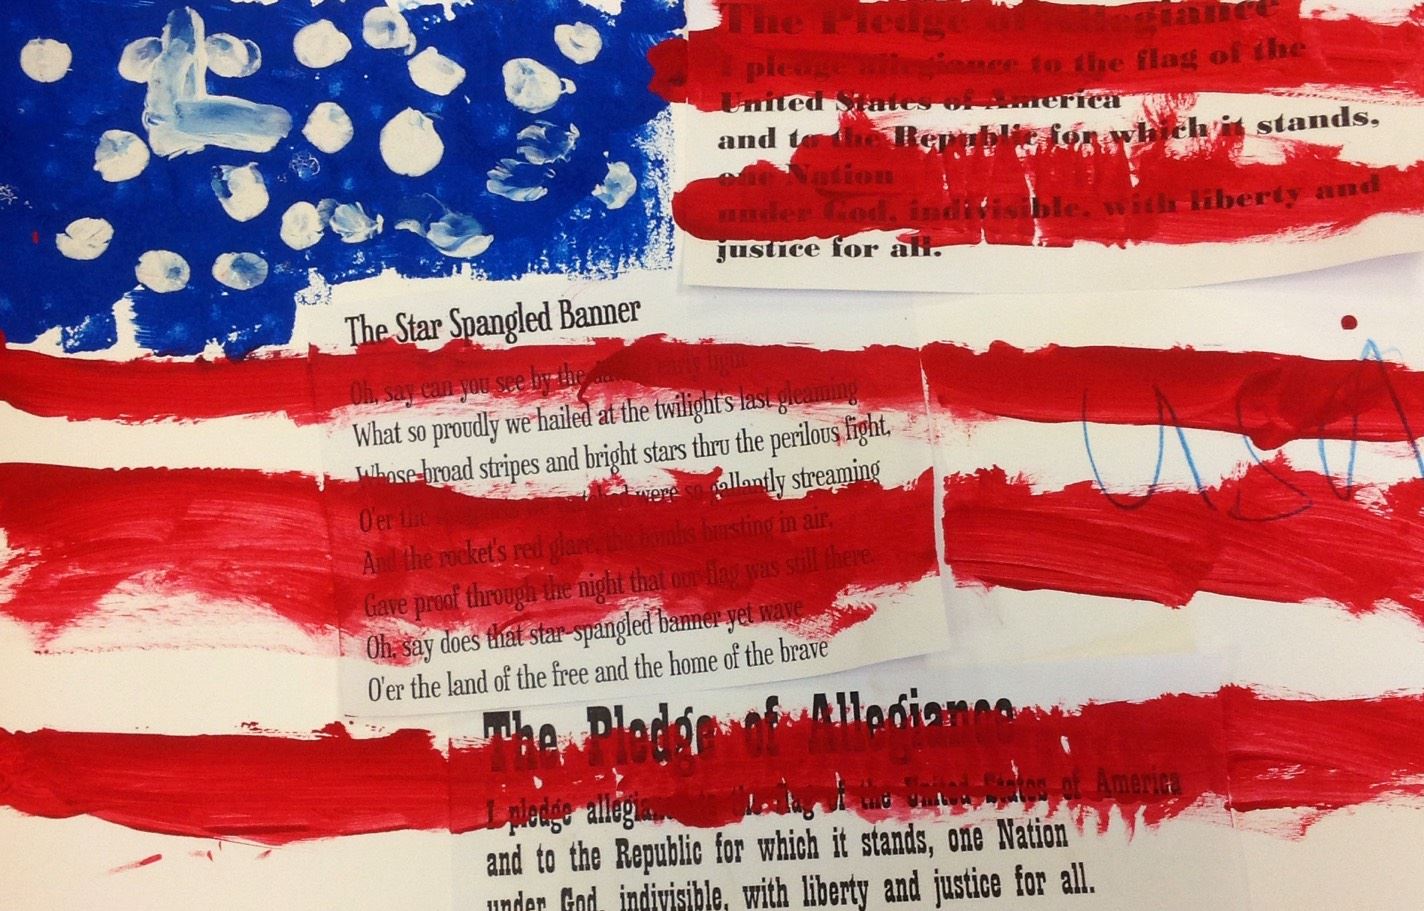 The Pledge of Allegiance
I pledge allegiance to the flag of the
United States of America
and to the Republic for which it stands,
one Nation
under God, indivisible, with liberty and
justice for all.
The Star Spangled Banner
Oh, say can you see by the early light
What so proudly we hailed at the twilight's last gleaming
Whose broad stripes and bright stars thru the perilous fight,
O'er the were so gallantly streaming
And the rocket's red glare, the bombs bursting in air,
Gave proof through the night that our flag was still there.
Oh, say does that star-spangled banner yet wave
O'er the land of the free and the home of the brave
USA
The Pledge of Allegiance
I pledge allegiance to the flag of the United States of America
and to the Republic for which it stands, one Nation
under God, indivisible, with liberty and justice for all.